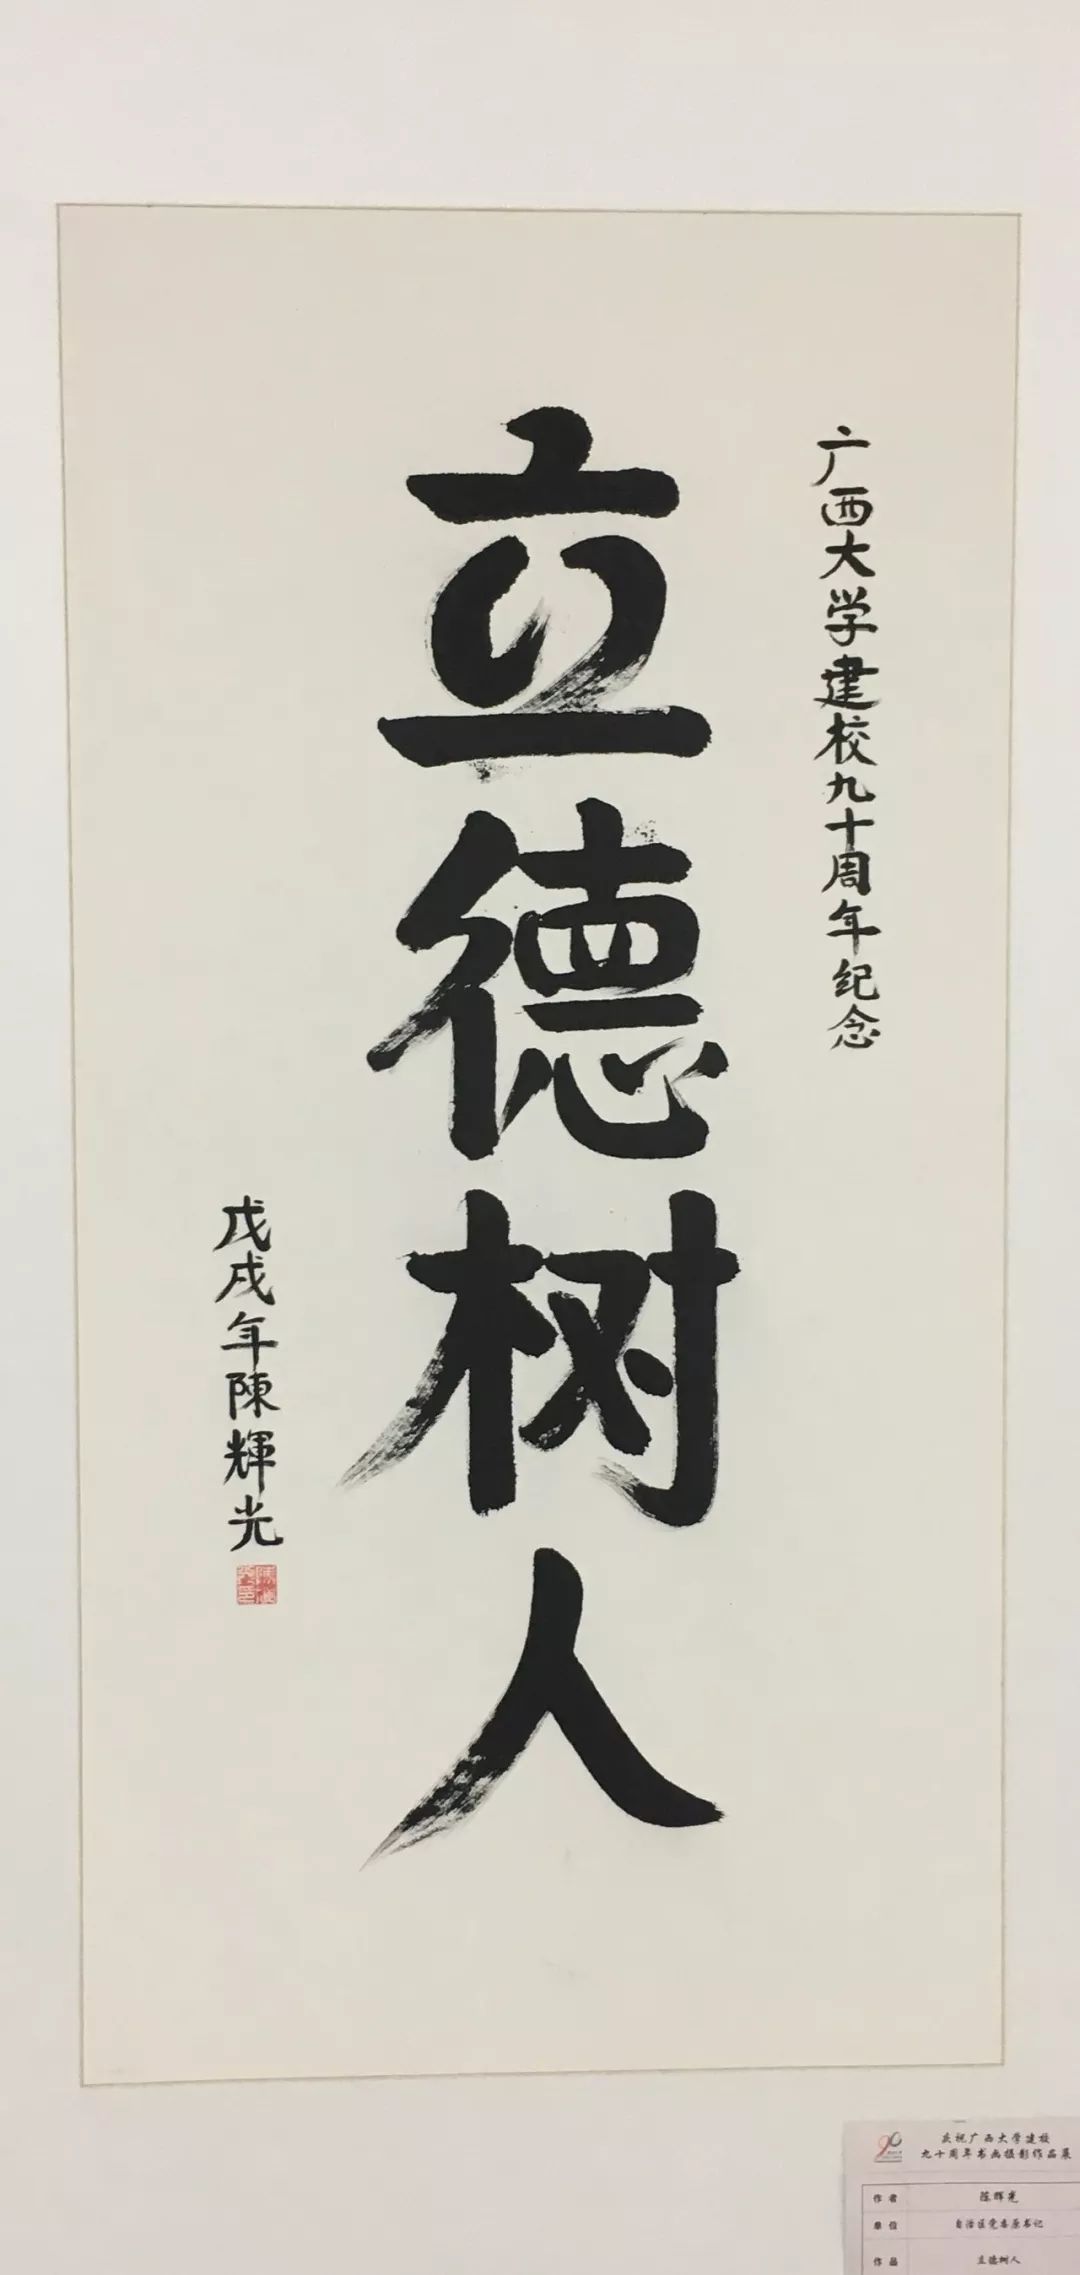 广西大学建校九十周年纪念
立德树人
戊戌年陳輝光
庆祝广西大学建校
九十周年书画摄影作品展
作者 陈辉光
单位 自治区党委原书记
作品 立德树人